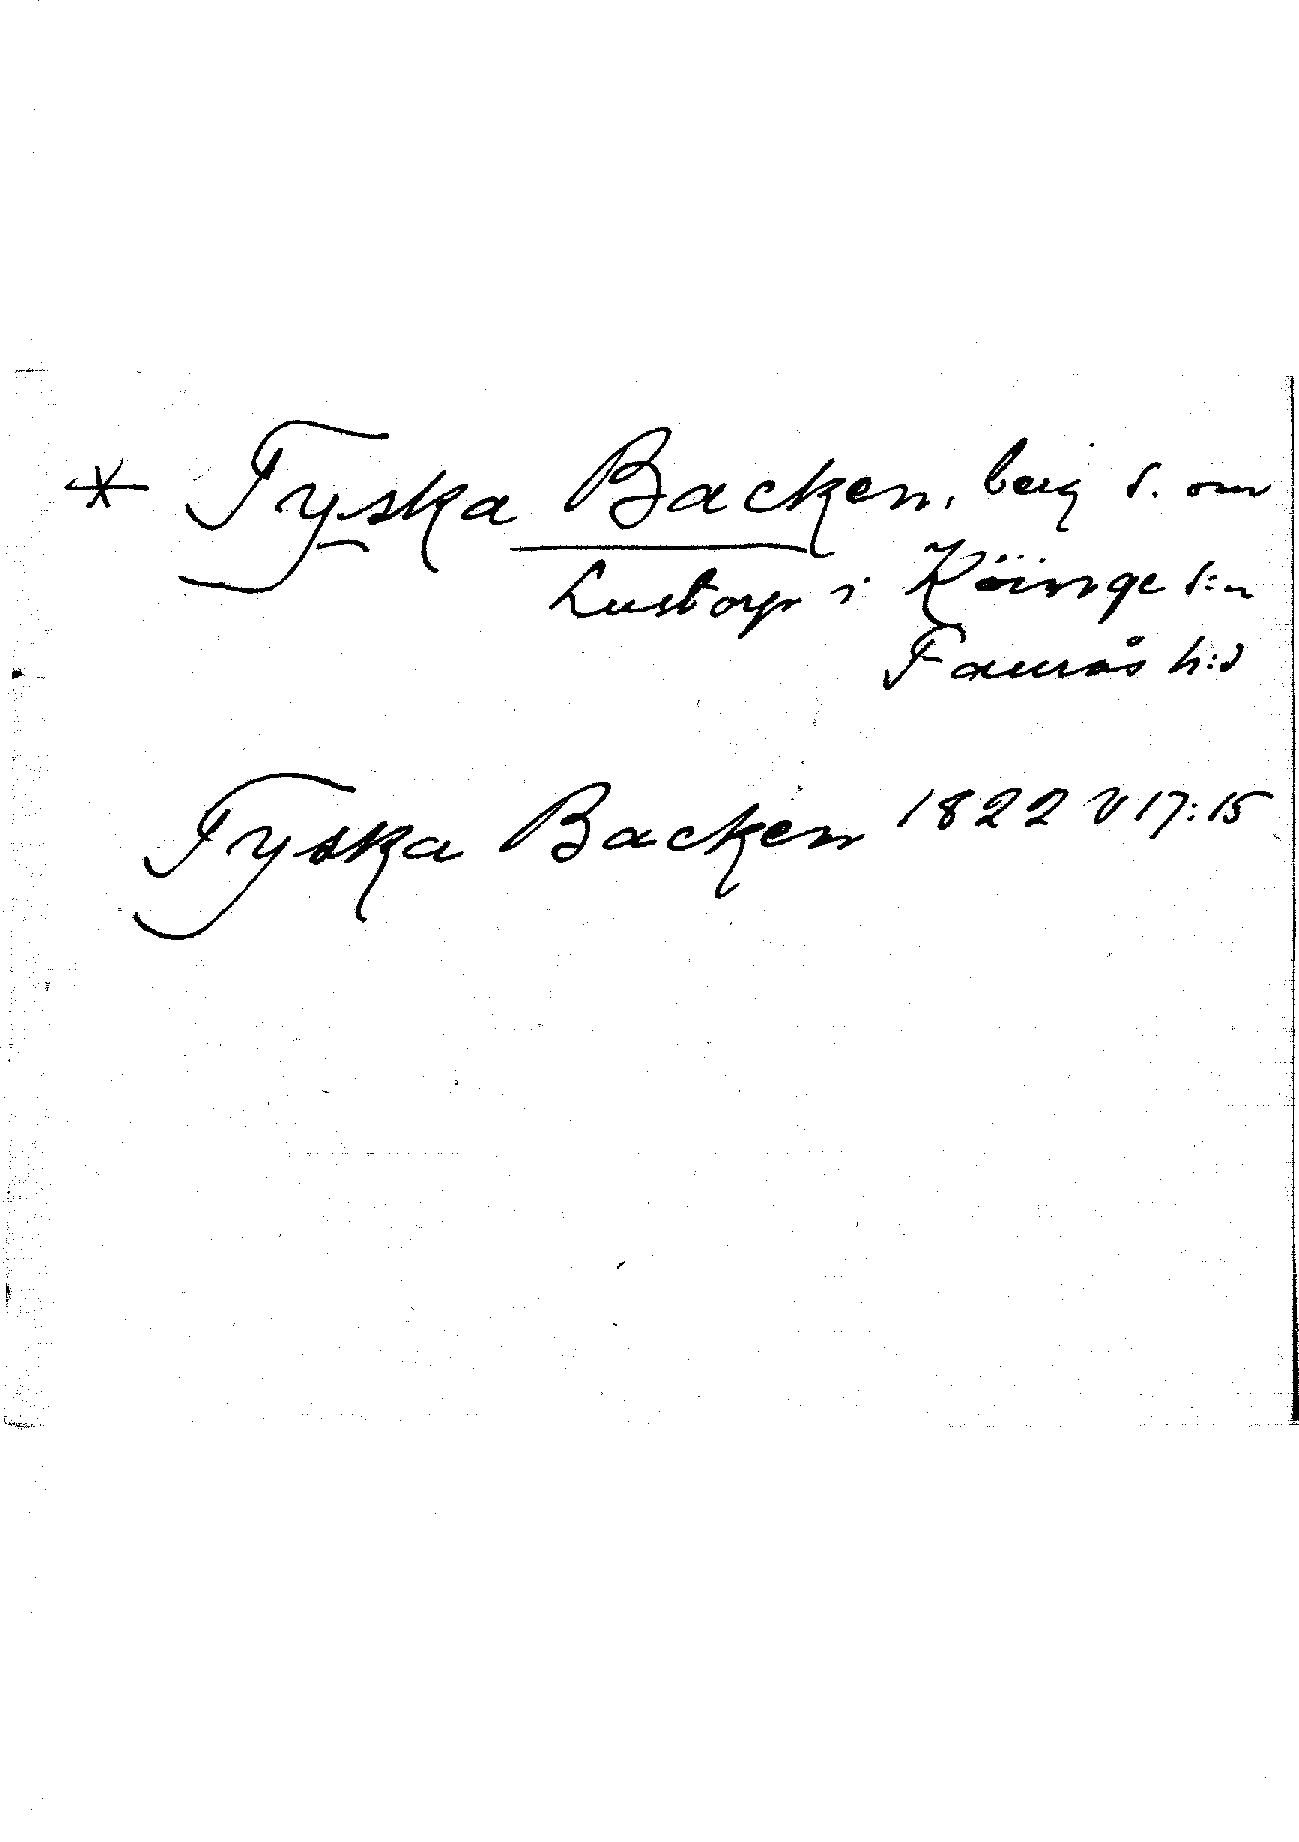 * Tyska Backen, berg s. om
Lustorp i Köinge s:n
Faurås h:d
Tyska Backen 1822 V 17:15